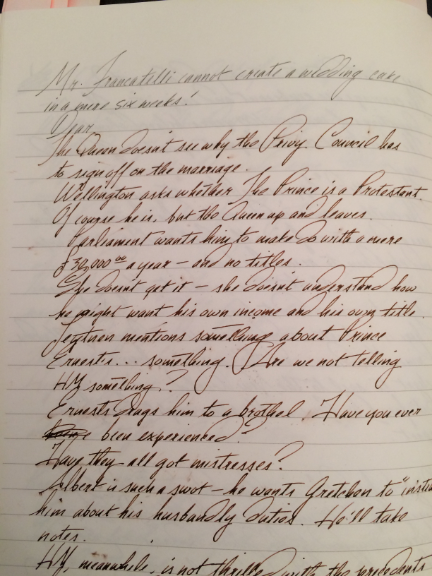 Mr. Francatelli cannot create a wedding cake
in a mere six weeks!
Dear,
The Queen doesn't see why the Privy Council has
to sign off on the marriage.
Wellington asks whether The Prince is a Protestant.
Of course he is, but the Queen up and leaves.
Parliament wants him to make do with a mere
a year – and no titles.
She doesn't get it – she doesn't understand how
he might want his own income and his own title.
mentions something about Prince
Ernest... something. Are we not telling
HM something?
Ernest drags him to a brothel. Have you ever
been experienced?
Have they all got mistresses?
Albert is such a swot – he wants Gretchen to "instru
him about his husbandly duties. He'll take
notes.
HM, meanwhile, is not thrilled with the precedents